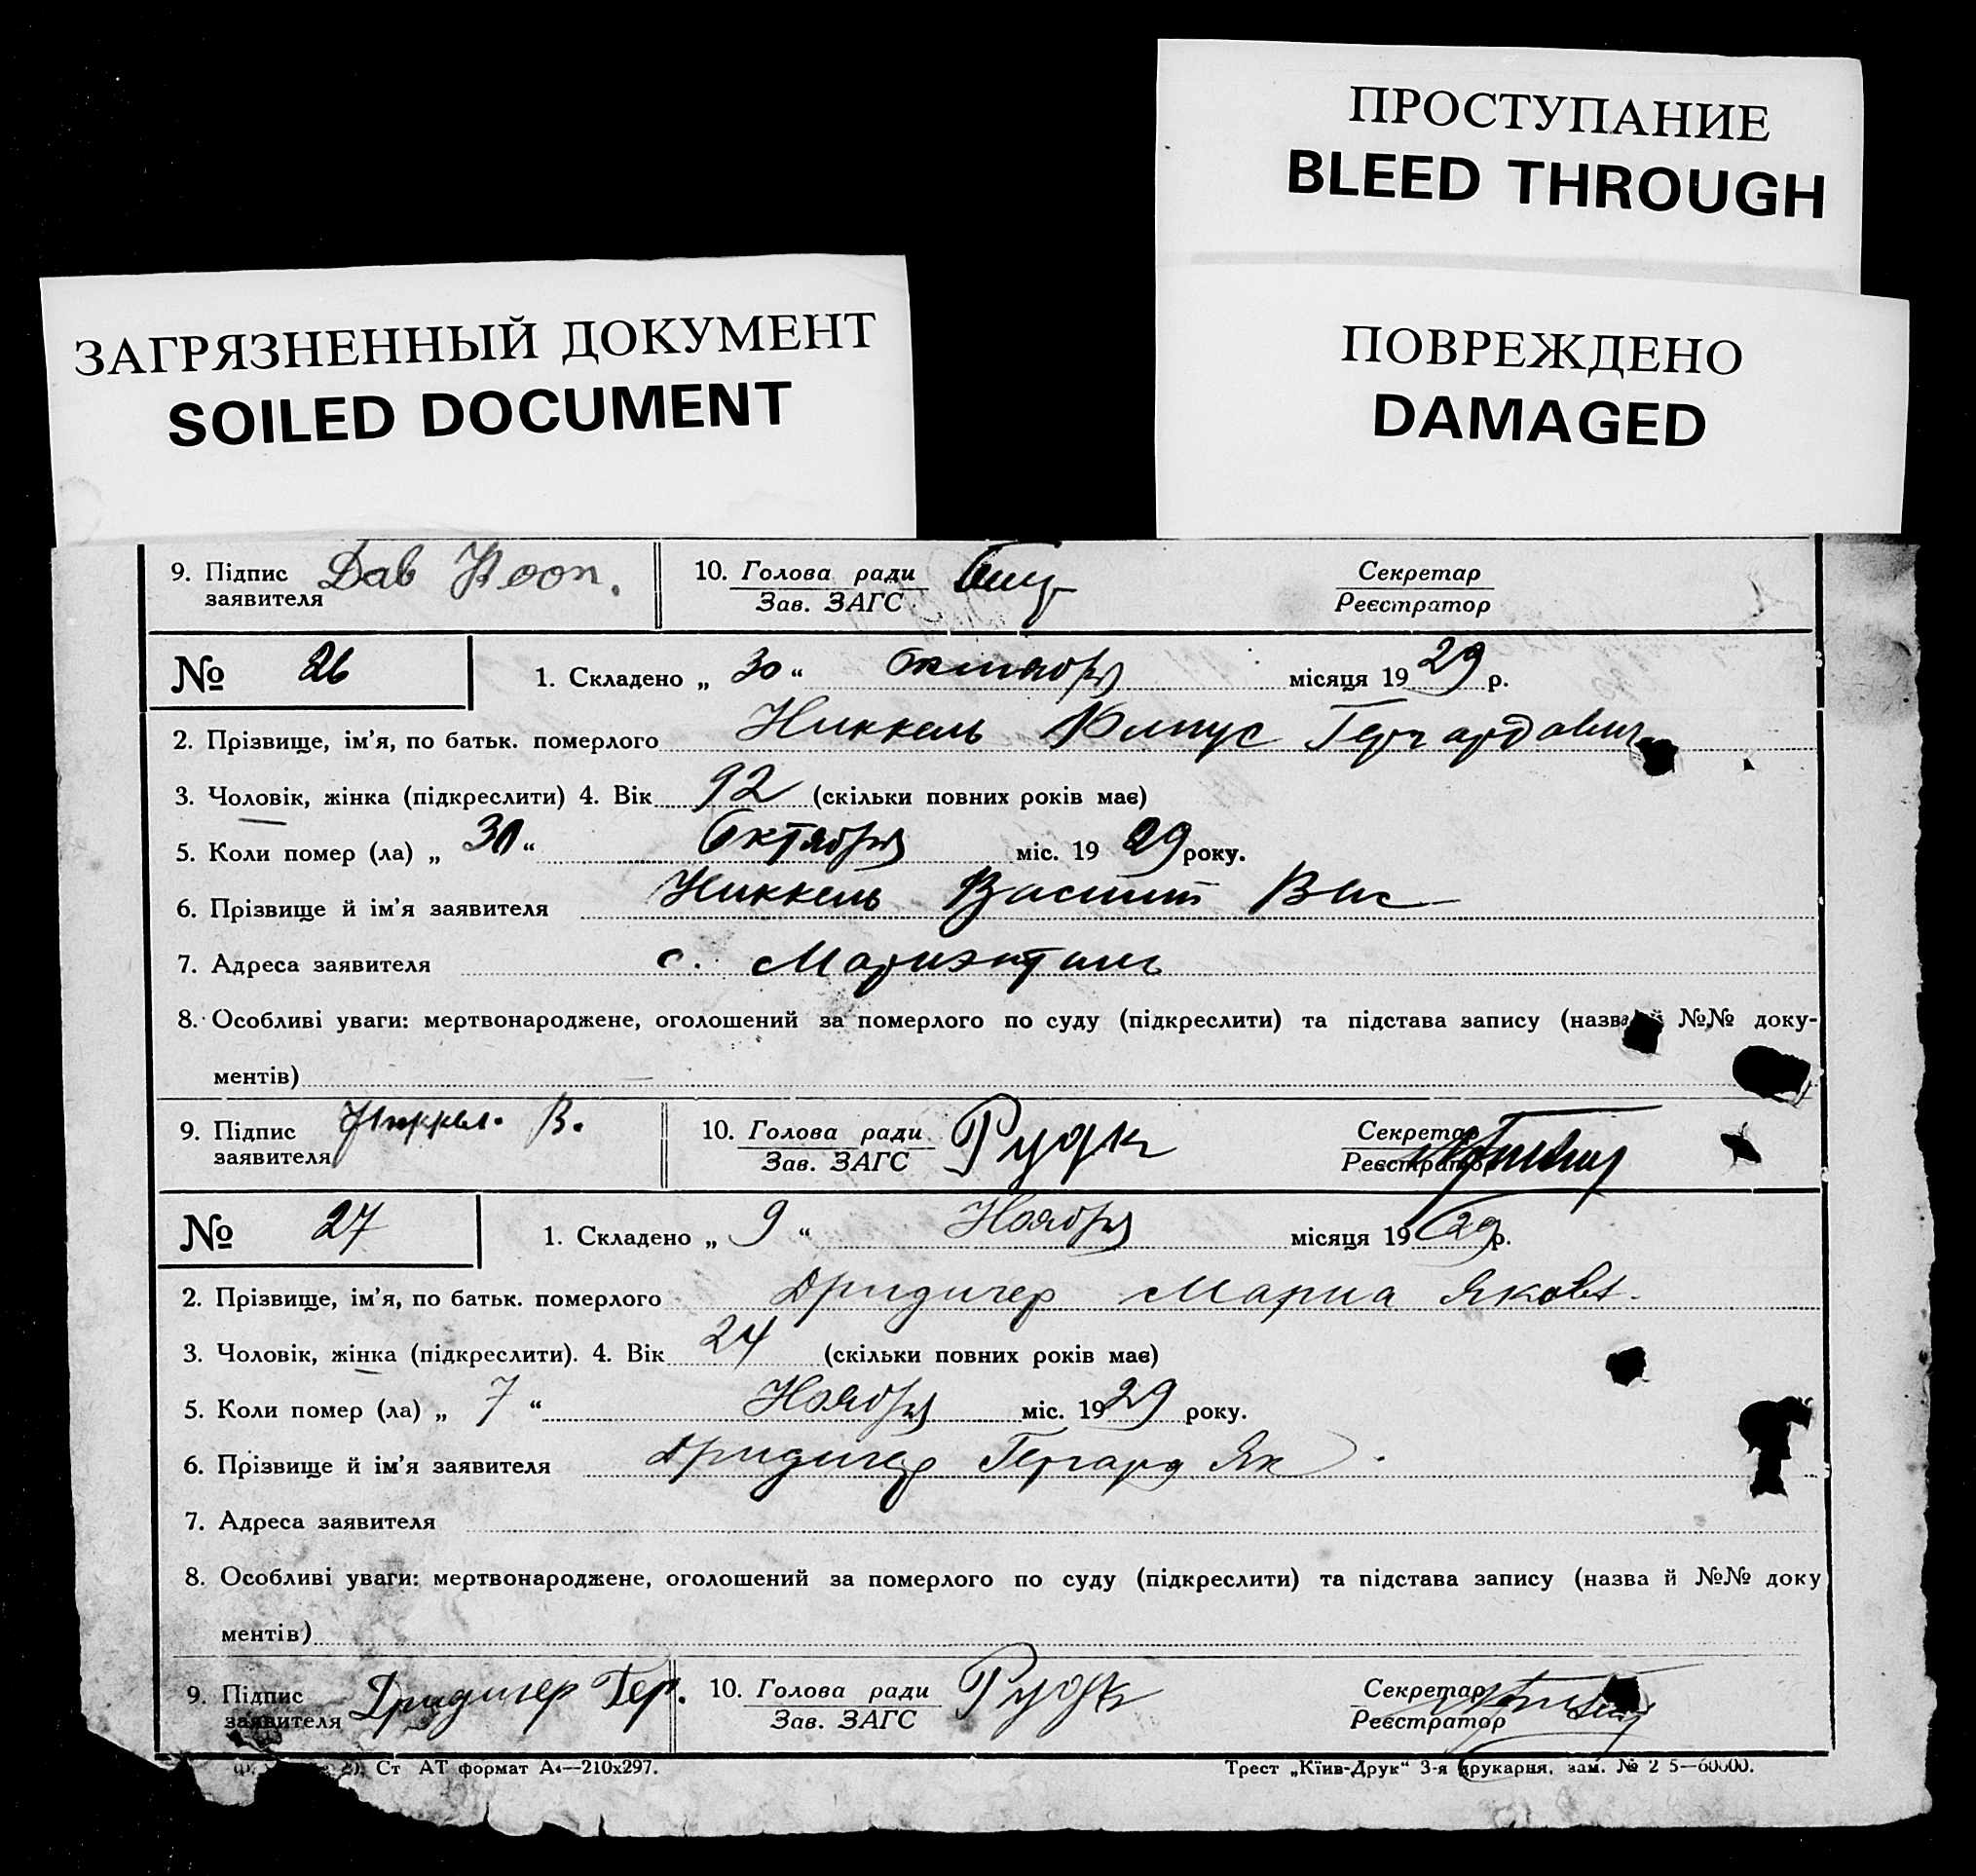 ПРОСТУПАНИЕ
BLEED THROUGH
ЗАГРЯЗНЕННЫЙ ДОКУМЕНТ
SOILED DOCUMENT
ПОВРЕЖДЕНО
DAMAGED
9. Підпис заявителя Дав 10. Голова ради Зав. ЗАГС Секретар Реєстратор
№ 26 1. Складено „ 30 “ Октября місяця 1929 р.
2. Прізвище, ім’я, по батьк. померлого Никкель Гергардович
3. Чоловік, жінка (підкреслити) 4. Вік 92 (скільки повних років має)
5. Коли помер (ла) „ 30 “ Октября міс. 19 29 року.
6. Прізвище й ім’я заявителя Никкель Вас
7. Адреса заявителя с. Мариэнталь
8. Особливі уваги: мертвонароджене, оголошений за померлого по суду (підкреслити) та підстава запису (назва й №№ доку-
ментів)
9. Підпис заявителя Никкел. В. 10. Голова ради Зав. ЗАГС Секретар Реєстратор
№ 27 1. Складено „ 9 “ Ноября місяця 1929 р.
2. Прізвище, ім’я, по батьк. померлого Дридигер Мариа Яковл.
3. Чоловік, жінка (підкреслити). 4. Вік 24 (скільки повних років має)
5. Коли помер (ла) „ 7 “ Ноября міс. 1929 року.
6. Прізвище й ім’я заявителя Дридигер Гергард Як
7. Адреса заявителя
8. Особливі уваги: мертвонароджене, оголошений за померлого по суду (підкреслити) та підстава запису (назва й №№ доку
ментів)
9. Підпис заявителя Дридигер Гер. 10. Голова ради Зав. ЗАГС Секретар Реєстратор
Ст АТ формат А4—210х297. Трест „Київ-Друк“ 3-я друкарня, зам. №